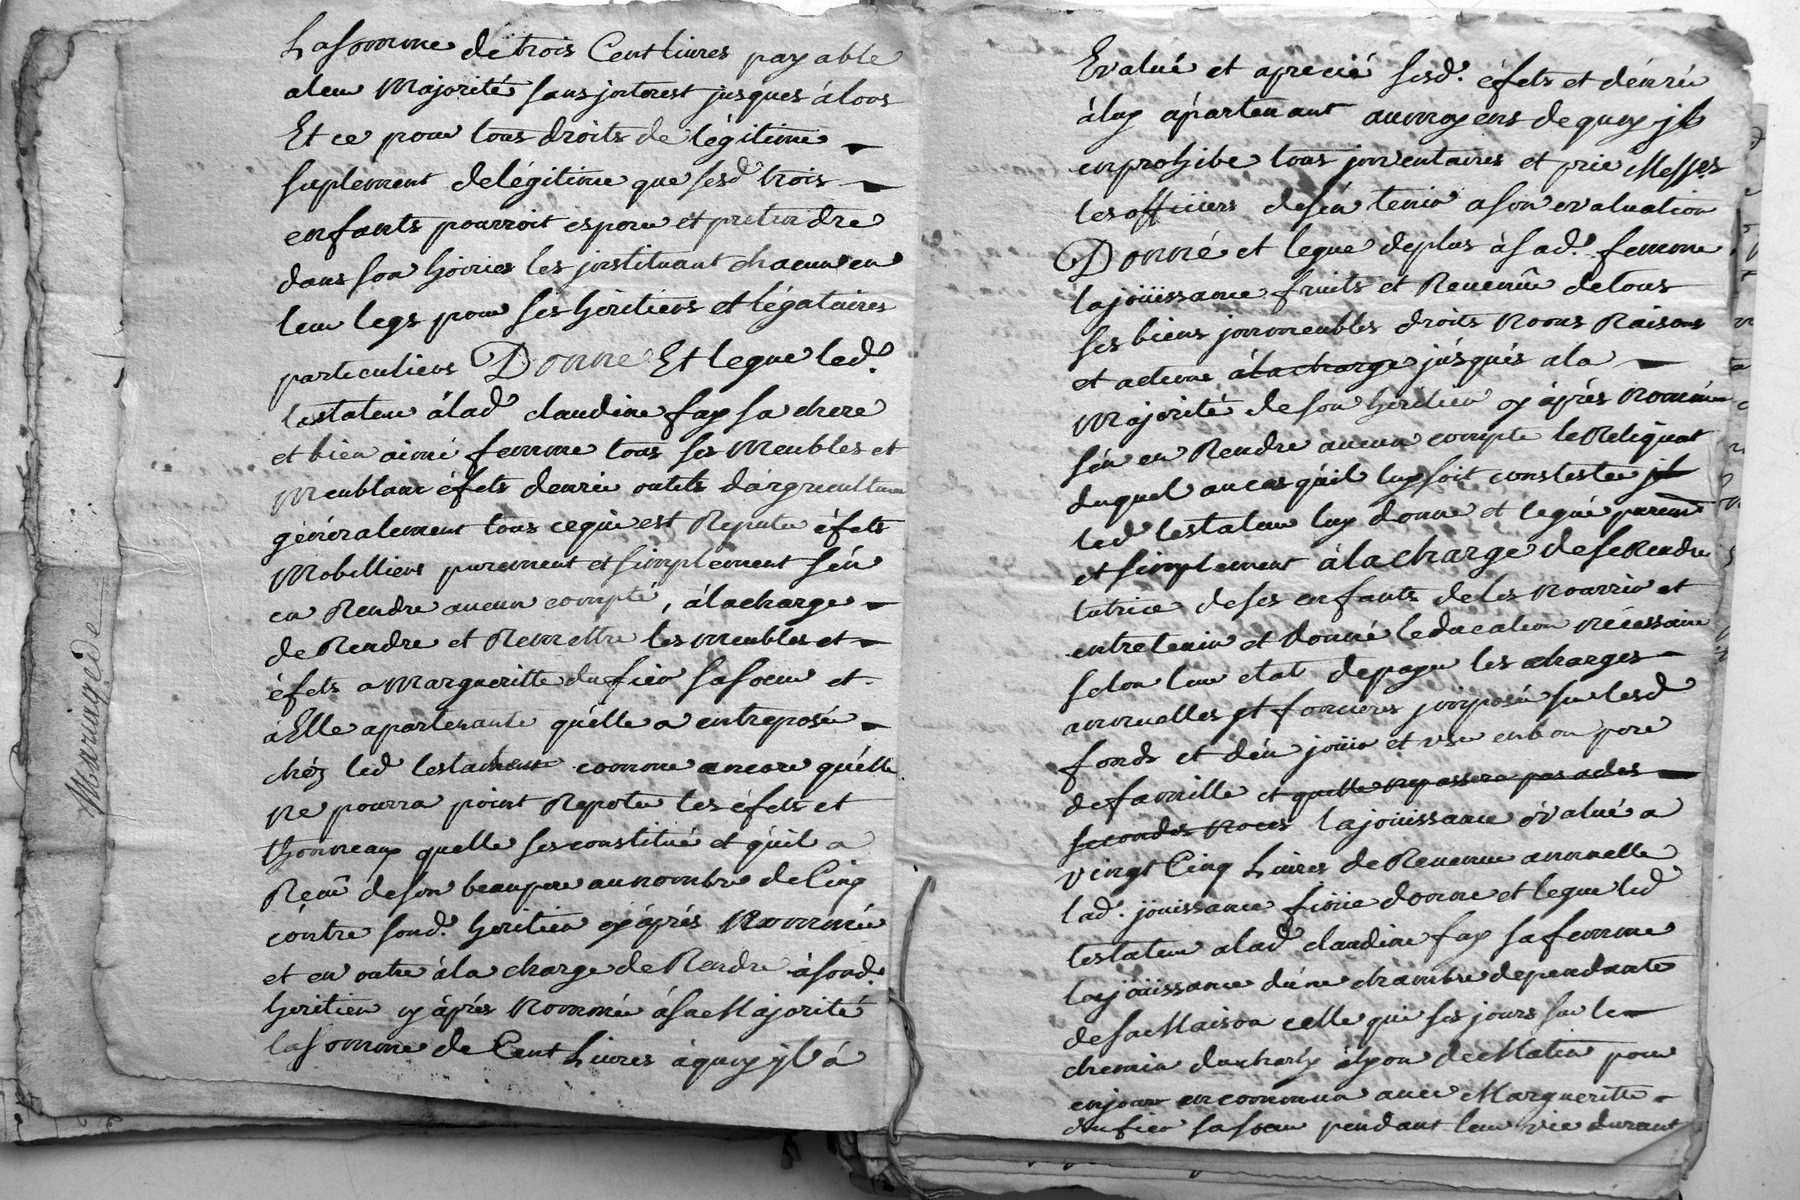 La somme de trois Cent livres payable
a leur Majorité sans jnterest jusques à lors
Et ce pour tous droits de légitime
suplement de légitime que sesd. trois
enfants pourroit esperer et pretendre
dans son hoirie les jnstituant chacun en
leur legs pour ses heritiers et légataires
particuliers Donne Et legue led.
testateur à lad. claudine fay sa chere
et bien aimé femme tous ses Meubles et
Meublant éfets denrée outils dàgriculture
généralement tous ce qui est Reputer éfets
Mobilliers purement et simplement sén
en Rendre aucun compte, à la charge
de Rendre et Remettre les meubles et
éfets a Margueritte dufier sa soeur et
à Elle apartenante quélle a entreposée
chéz led testateur comme ancore quélle
ne pourra point Repeter les éfets et
thonneaux quelle ses constitué et quil a
Reçeu de son beaupere au nombre de Cinq
contre sond. heritier cy àprés Nommée
et en outre à la charge de Rendre à sond.
heritier cy àprés Nommée à sa Majorité
la somme de Cent Livres à quoy jl à
Evalué et aprecié sesd. éfets et dénrée
à luy apartenant au moyens de quoy jl
en prohibe tous jnventaires et prie Mess.rs
les officiers de sén tenir a son evaluation
Donné et legue de plus à sad. femme
la joüissance fruits et Revenu de tous
ses biens jmmeubles droits Noms Raisons
et actions à la charge jusqués a la
Majorité de son heritier cy àprés Nommée
sén en Rendre aucun compte le Reliquat
duquel au cas quil luy soit contester jl
led testateur luy donne et legué purement
et simplement à la charge de se Rendre
tutrice de ses enfants de les nourrir et
entretenir et donné leducation nécessaire
selon leur etat de payer les charges
annuelles et foncieres jmposée sur lesd
fonds et dén joüir et user en bon pere
de famille et quelle ne passera pas a des
secondes noces la joüissance évalué a
vingt Cinq Livres de Revenue annuelle
lad. joüissance finie donne et legue led
testateur a lad. claudine fay sa femme
la joüissance dúne chambre dependante
de sa Maison celle qui ses jours sur le
chemin du charly à lyon de Matin pour
en jouir en commun avec Margueritte
dufier sa soeur pendant leur vie durant
Mariage de